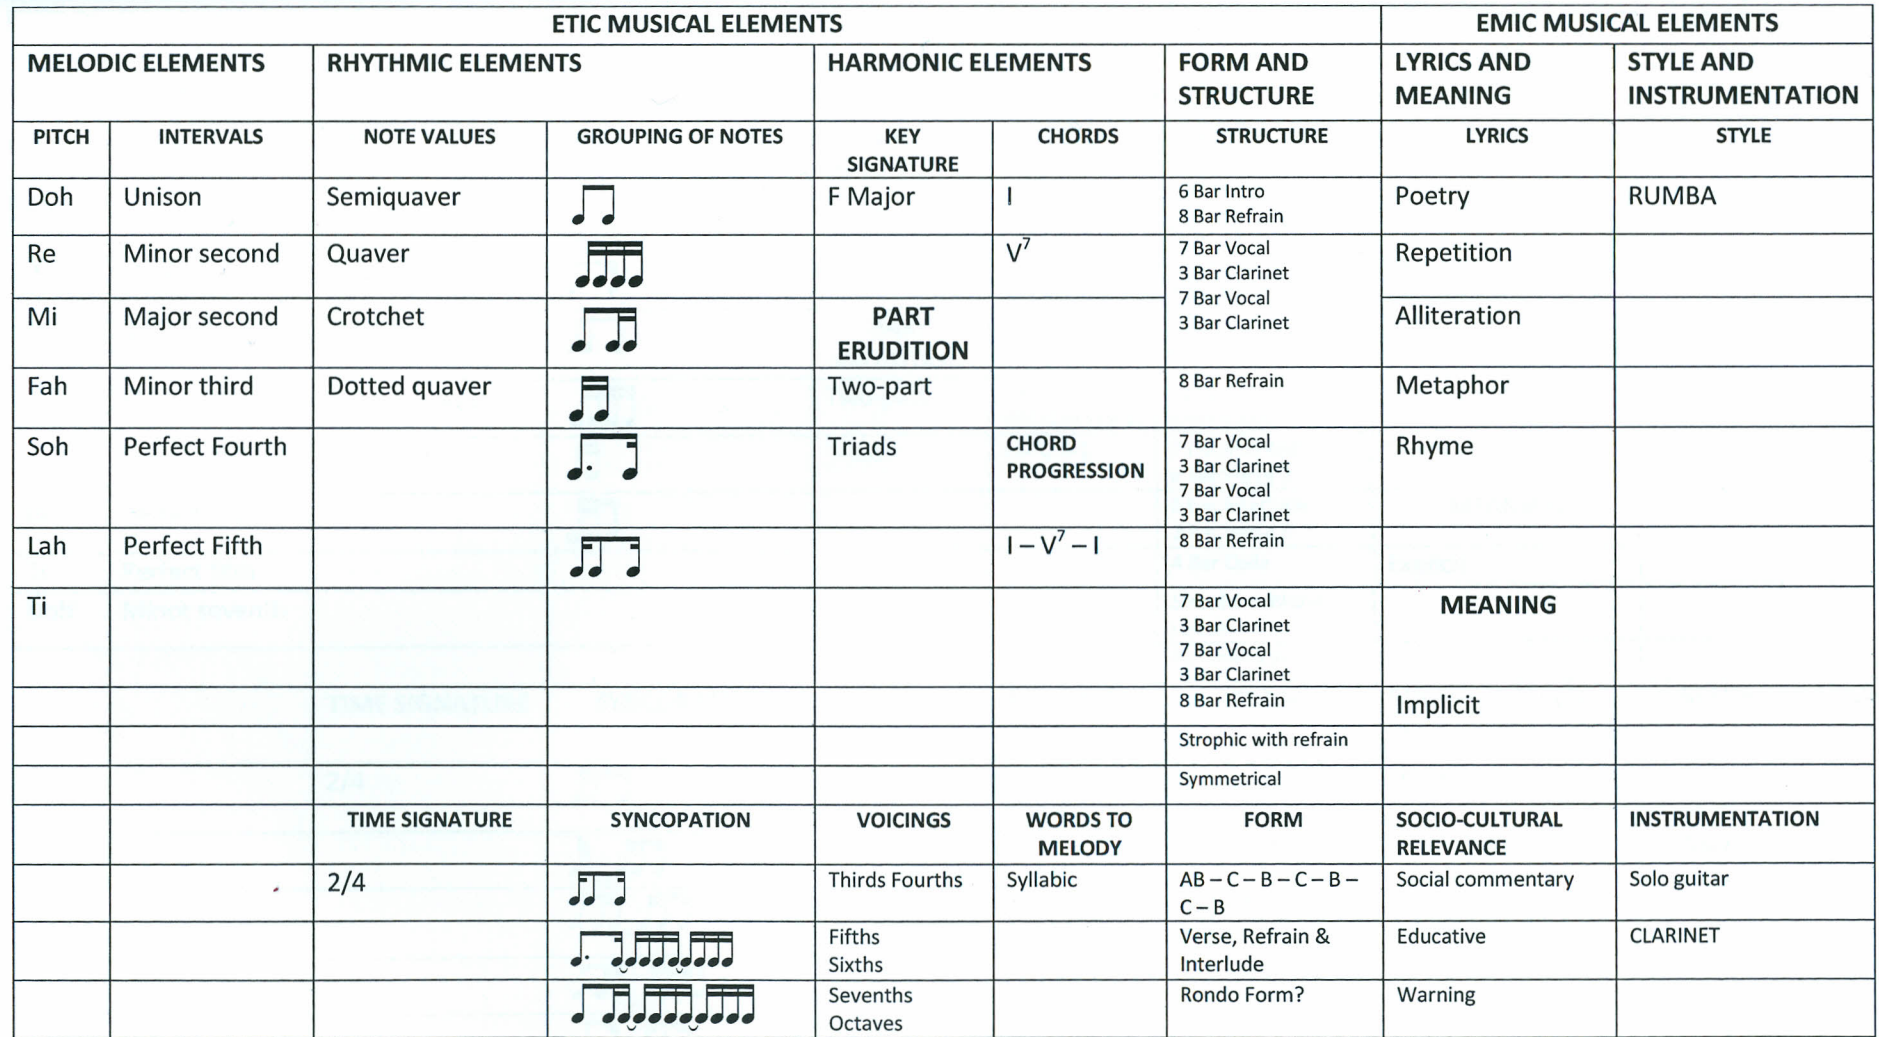 ETIC MUSICAL ELEMENTS
EMIC MUSICAL ELEMENTS
MELODIC ELEMENTS
RHYTHMIC ELEMENTS
HARMONIC ELEMENTS
FORM AND
STRUCTURE
LYRICS AND
MEANING
STYLE AND
INSTRUMENTATION
PITCH
INTERVALS
NOTE VALUES
GROUPING OF NOTES
KEY
SIGNATURE
CHORDS
STRUCTURE
LYRICS
STYLE
Doh
Unison
Semiquaver
F Major
I
6 Bar Intro
8 Bar Refrain
Poetry
RUMBA
Re
Minor second
Quaver
V⁷
7 Bar Vocal
3 Bar Clarinet
7 Bar Vocal
3 Bar Clarinet
Repetition
Mi
Major second
Crotchet
PART
ERUDITION
Alliteration
Fah
Minor third
Dotted quaver
Two-part
8 Bar Refrain
Metaphor
Soh
Perfect Fourth
Triads
CHORD
PROGRESSION
7 Bar Vocal
3 Bar Clarinet
7 Bar Vocal
3 Bar Clarinet
Rhyme
Lah
Perfect Fifth
I – V⁷ – I
8 Bar Refrain
Ti
7 Bar Vocal
3 Bar Clarinet
7 Bar Vocal
3 Bar Clarinet
MEANING
8 Bar Refrain
Implicit
Strophic with refrain
Symmetrical
TIME SIGNATURE
SYNCOPATION
VOICINGS
WORDS TO
MELODY
FORM
SOCIO-CULTURAL
RELEVANCE
INSTRUMENTATION
2/4
Thirds Fourths
Syllabic
AB – C – B – C – B –
C – B
Social commentary
Solo guitar
Fifths
Sixths
Verse, Refrain &
Interlude
Educative
CLARINET
Sevenths
Octaves
Rondo Form?
Warning